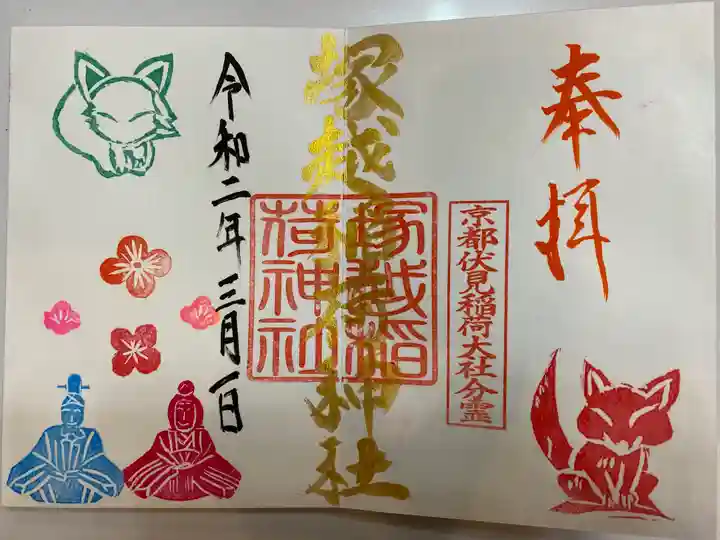 奉拝
京都伏見稲荷大社分霊
塚越稲荷神社
塚越稲荷神社
令和二年三月一日